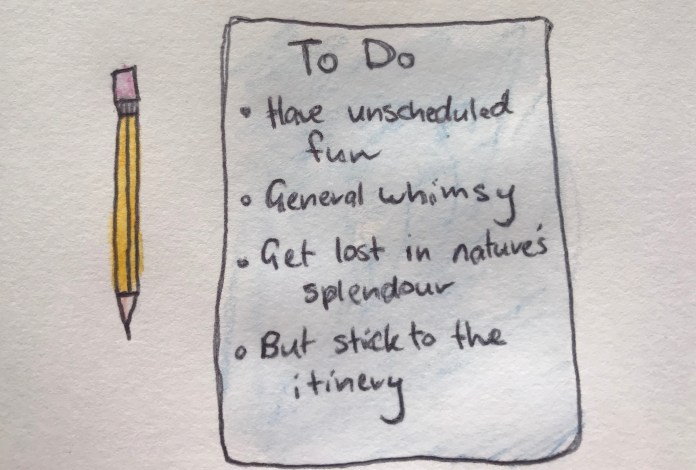 To Do
• Have unscheduled
fun
• General whimsy
• Get lost in nature's
splendour
• But stick to the
itinery